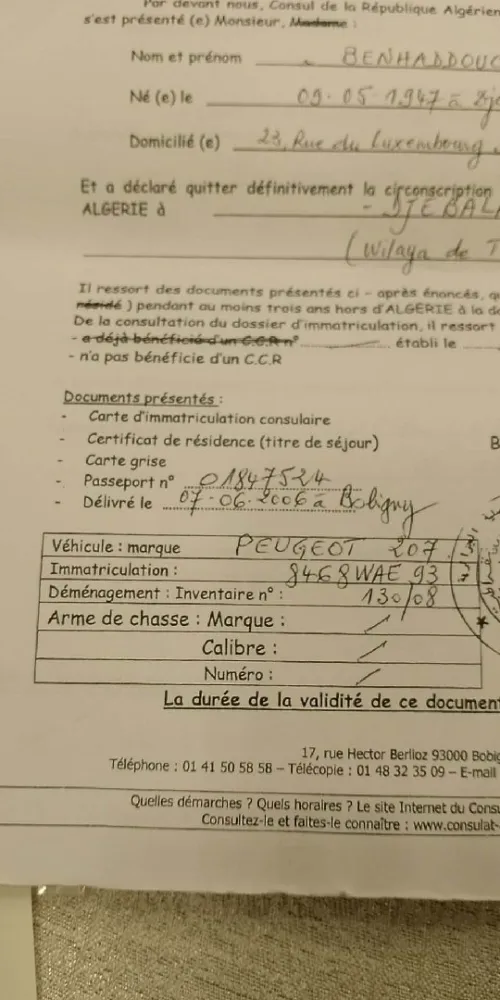 Par devant nous, Consul de la République Algérien
s'est présenté (e) Monsieur, Madame :
Nom et prénom BENHADDOUC
Né (e) le 09-05-1947 à Dje
Domicilié (e) 23, Rue du Luxembourg
Et a déclaré quitter définitivement la circonscription
ALGERIE à - DJEBALA
(Wilaya de T
Il ressort des documents présentés ci - après énoncés, qu
résidé ) pendant au moins trois ans hors d'ALGERIE à la da
De la consultation du dossier d'immatriculation, il ressort
- a déjà bénéficié d'un C.C.R n° établi le
- n'a pas bénéficie d'un C.C.R
Documents présentés :
- Carte d'immatriculation consulaire
- Certificat de résidence (titre de séjour)
- Carte grise
- Passeport n° 01847524
- Délivré le 07-06-2006 à Bobigny
Véhicule : marque PEUGEOT 207
Immatriculation : 8468 WAE 93
Déménagement : Inventaire n° : 130/08
Arme de chasse : Marque : /
Calibre : /
Numéro : /
La durée de la validité de ce document
17, rue Hector Berlioz 93000 Bobig
Téléphone : 01 41 50 58 58 – Télécopie : 01 48 32 35 09 – E-mail
Quelles démarches ? Quels horaires ? Le site Internet du Consu
Consultez-le et faites-le connaître : www.consulat-